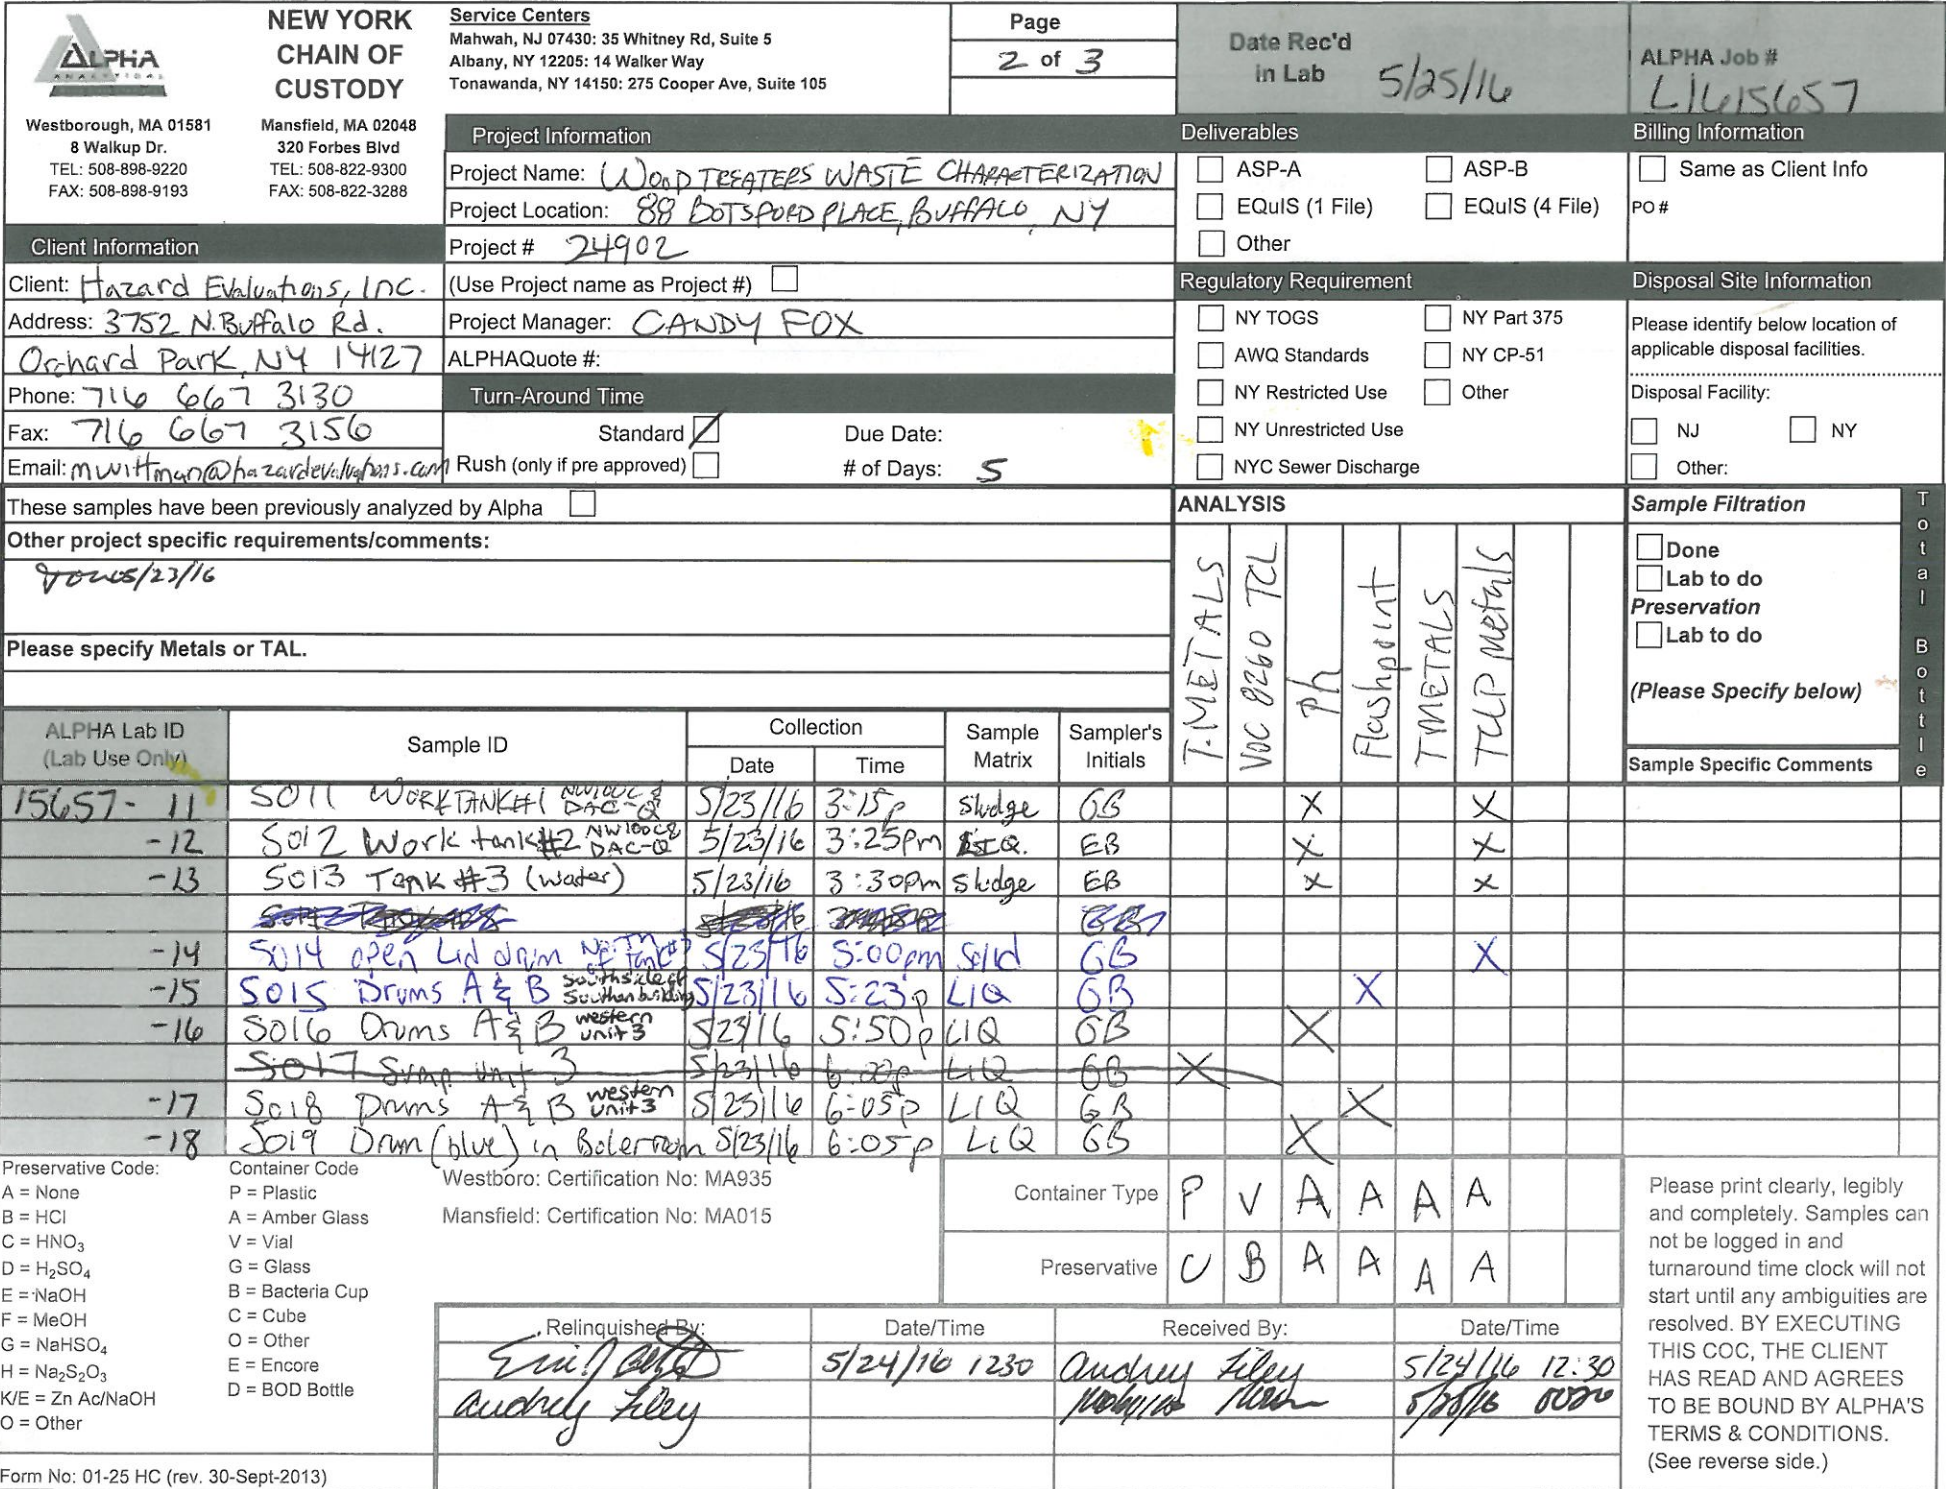 ALPHA
ANALYTICAL
NEW YORK
CHAIN OF
CUSTODY
Westborough, MA 01581
8 Walkup Dr.
TEL: 508-898-9220
FAX: 508-898-9193
Mansfield, MA 02048
320 Forbes Blvd
TEL: 508-822-9300
FAX: 508-822-3288
Service Centers
Mahwah, NJ 07430: 35 Whitney Rd, Suite 5
Albany, NY 12205: 14 Walker Way
Tonawanda, NY 14150: 275 Cooper Ave, Suite 105
Page
2 of 3
Date Rec'd
in Lab 5/25/16
ALPHA Job #
L1615657
Client Information
Client: Hazard Evaluations, Inc.
Address: 3752 N. Buffalo Rd.
Orchard Park, NY 14127
Phone: 716 667 3130
Fax: 716 667 3156
Email: mwittman@hazardevaluations.com
Project Information
Project Name: WOODTREATERS WASTE CHARACTERIZATION
Project Location: 88 BOTSFORD PLACE, BUFFALO, NY
Project # 24902
(Use Project name as Project #)
Project Manager: CANDY FOX
ALPHAQuote #:
Turn-Around Time
Standard
Due Date:
Rush (only if pre approved)
# of Days: 5
Deliverables
ASP-A
ASP-B
EQuIS (1 File)
EQuIS (4 File)
Other
Regulatory Requirement
NY TOGS
NY Part 375
AWQ Standards
NY CP-51
NY Restricted Use
Other
NY Unrestricted Use
NYC Sewer Discharge
Billing Information
Same as Client Info
PO #
Disposal Site Information
Please identify below location of
applicable disposal facilities.
Disposal Facility:
NJ
NY
Other:
These samples have been previously analyzed by Alpha
Other project specific requirements/comments:
5/23/16
Please specify Metals or TAL.
ANALYSIS
T.METALS
VOC 8260 TCL
ph
Flashpoint
TMETALS
TCLP Metals
Sample Filtration
Done
Lab to do
Preservation
Lab to do
(Please Specify below)
Total Bottle
ALPHA Lab ID
(Lab Use Only)
Sample ID
Collection
Date
Time
Sample
Matrix
Sampler's
Initials
Sample Specific Comments
15657-11 S011 WORKTANK#1 DAC-Q 5/23/16 3:15p Sludge GB X X
-12 S012 Work tank #2 NW100C& DAC-Q 5/23/16 3:25pm LIQ. EB X X
-13 S013 Tank #3 (water) 5/23/16 3:30pm Sludge EB X X
-14 S014 open Lid drum North of tank 5/23/16 5:00pm Solid GB X
-15 S015 Drums A & B Southside of Southern building 5/23/16 5:23p LIQ GB X
-16 S016 Drums A & B western unit 3 5/23/16 5:50p LIQ GB X
S017 Sump unit 3 5/23/16 6:00p LIQ GB X
-17 S018 Drums A & B western unit 3 5/23/16 6:05p LIQ GB X
-18 S019 Drum (blue) in Boiler room 5/23/16 6:05p LIQ GB X
Preservative Code:
A = None
B = HCl
C = HNO3
D = H2SO4
E = NaOH
F = MeOH
G = NaHSO4
H = Na2S2O3
K/E = Zn Ac/NaOH
O = Other
Container Code
P = Plastic
A = Amber Glass
V = Vial
G = Glass
B = Bacteria Cup
C = Cube
O = Other
E = Encore
D = BOD Bottle
Westboro: Certification No: MA935
Mansfield: Certification No: MA015
Container Type P V A A A A
Preservative C B A A A A
Relinquished By:
Date/Time
Received By:
Date/Time
5/24/16 1230 Audrey Filey 5/24/16 12:30
Audrey Filey
5/25/16 0020
Please print clearly, legibly
and completely. Samples can
not be logged in and
turnaround time clock will not
start until any ambiguities are
resolved. BY EXECUTING
THIS COC, THE CLIENT
HAS READ AND AGREES
TO BE BOUND BY ALPHA'S
TERMS & CONDITIONS.
(See reverse side.)
Form No: 01-25 HC (rev. 30-Sept-2013)